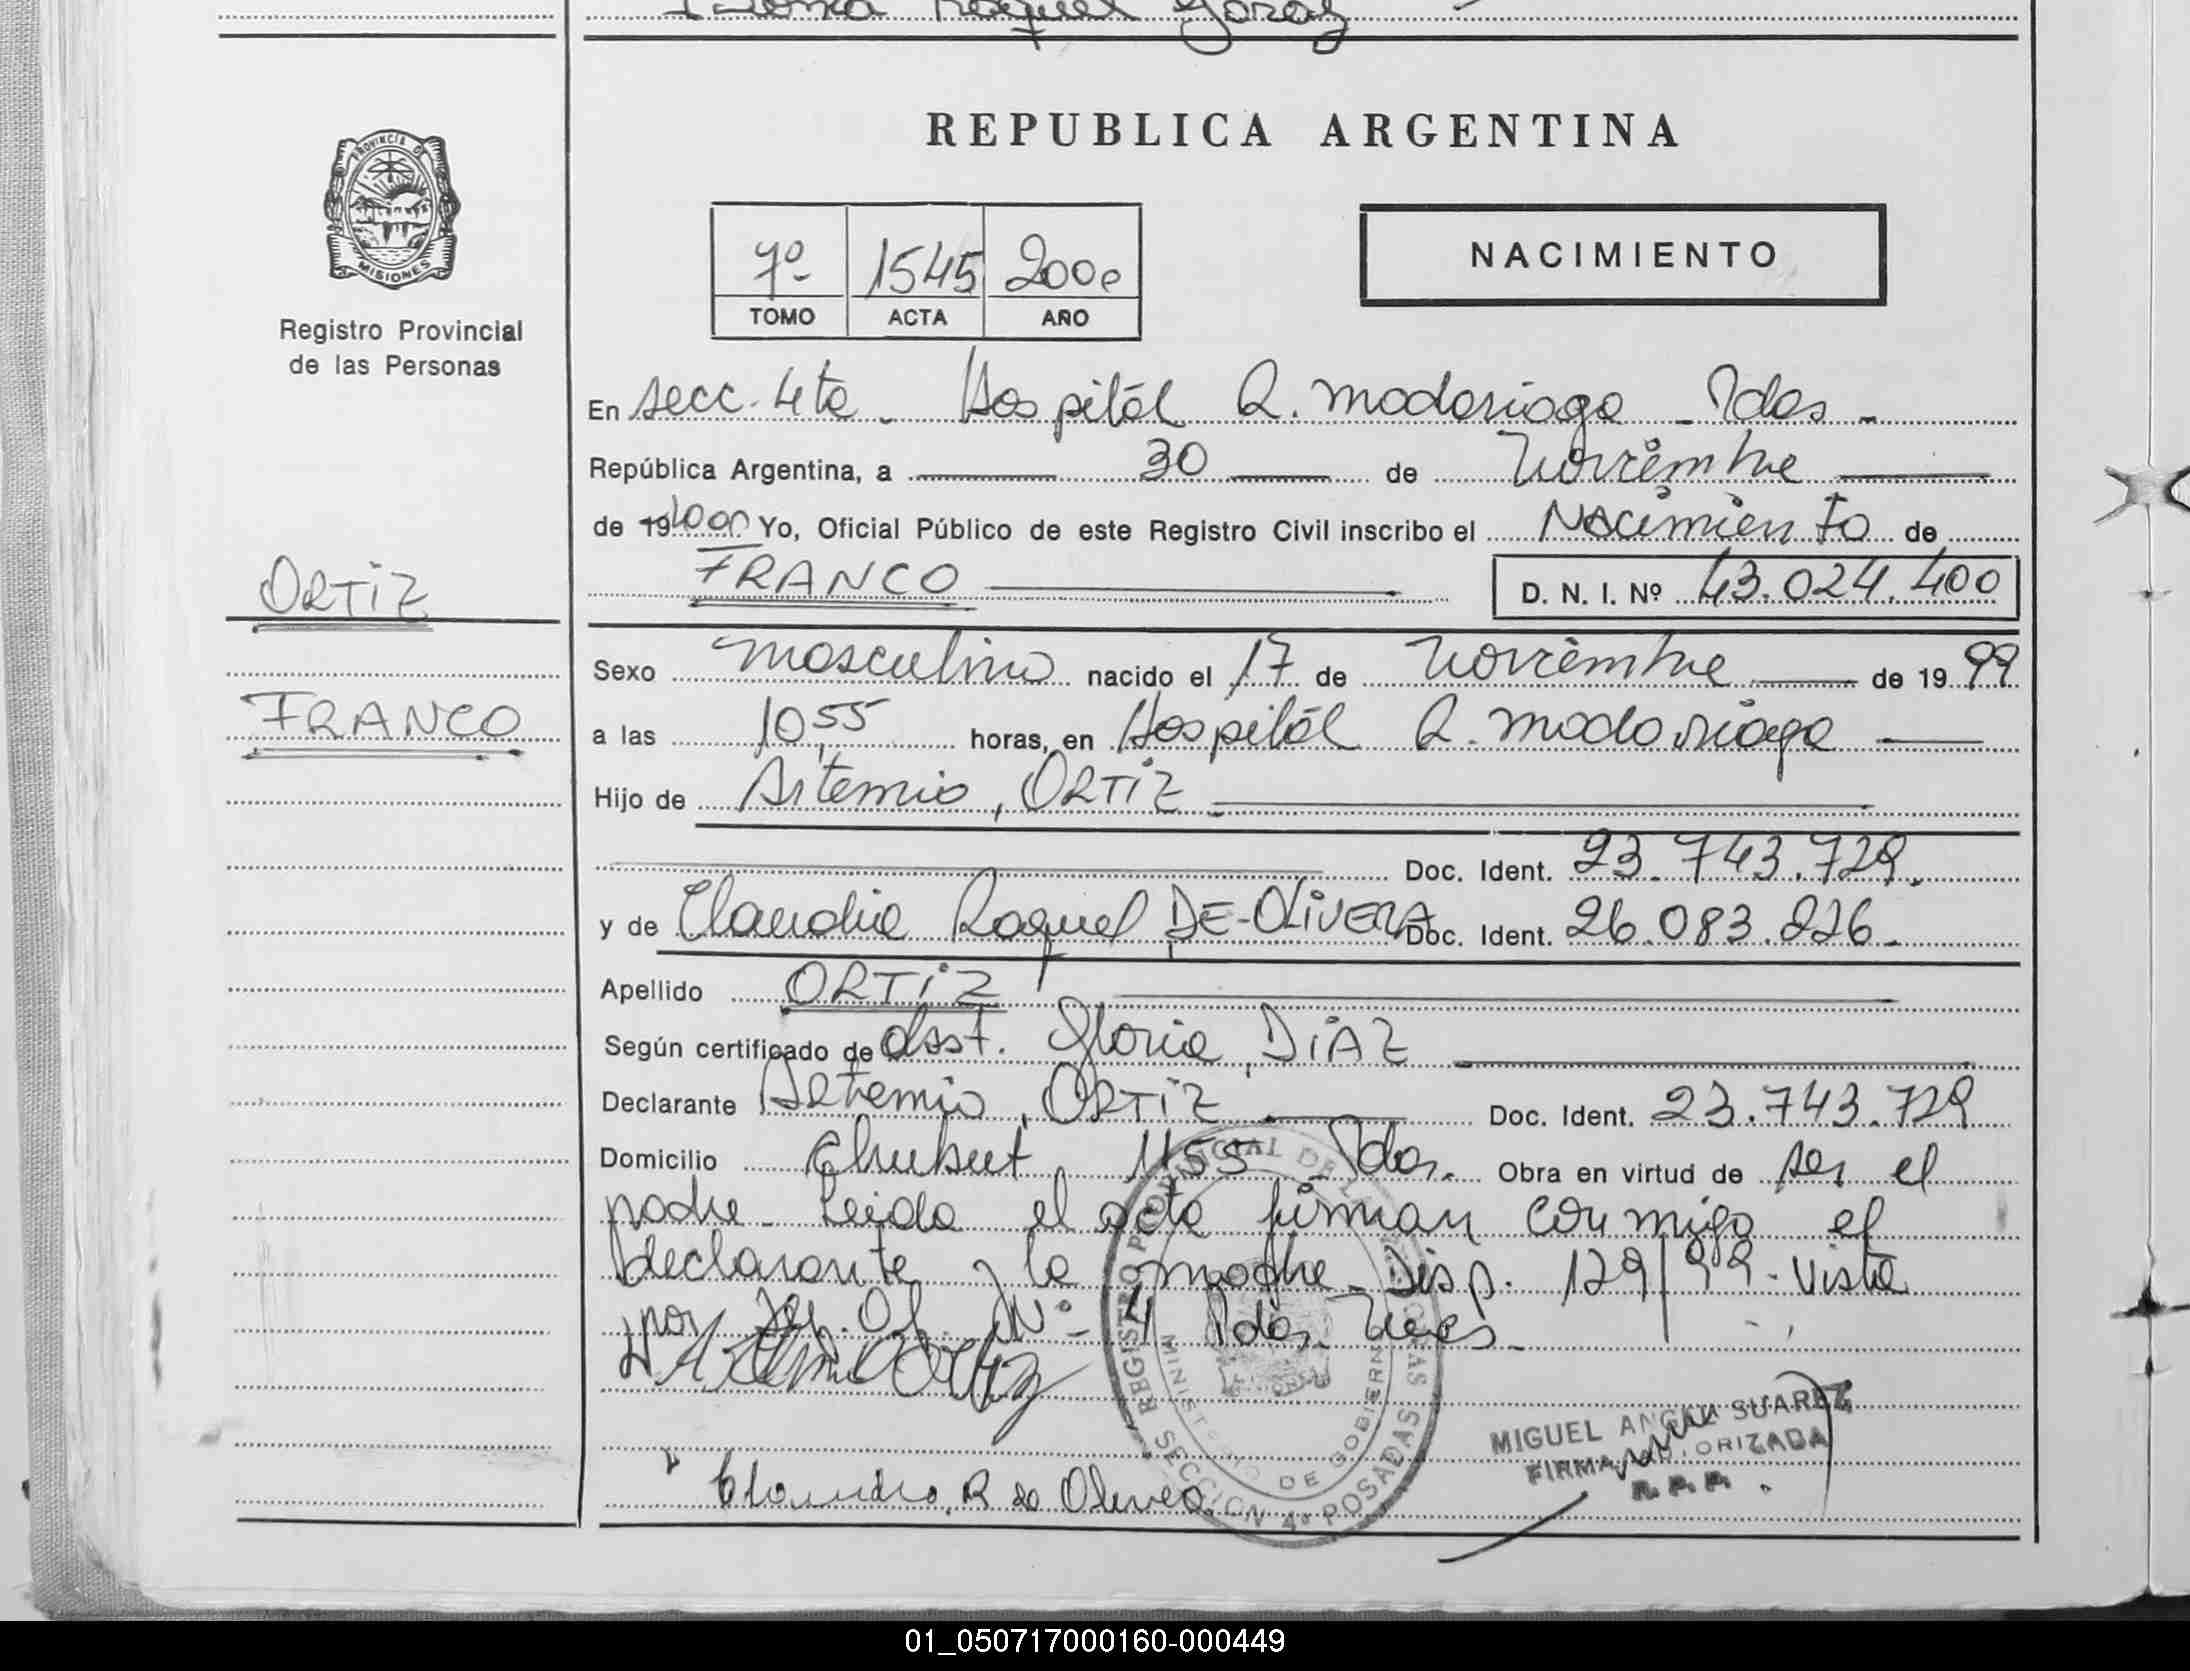 Raquel
REPUBLICA ARGENTINA
PROVINCIA D
MISIONES
Registro Provincial
de las Personas
7º 1545 2000
TOMO ACTA AÑO
NACIMIENTO
En secc. 4ta. Hospital R. Madariaga - Pdas -
República Argentina, a 30 de Noviembre
de 19 2000 Yo, Oficial Público de este Registro Civil inscribo el Nacimiento de
FRANCO D. N. I. Nº 43.024.400
ORTIZ
FRANCO
Sexo masculino nacido el 17 de Noviembre de 19 99
a las 10,55 horas, en Hospital R. Madariaga
Hijo de Artemio, ORTIZ
Doc. Ident. 23.743.729.
y de Claudia Raquel, DE-OLIVERA Doc. Ident. 26.083.226.
Apellido ORTIZ
Según certificado de Obst. Gloria, DIAZ
Declarante Artemio, ORTIZ Doc. Ident. 23.743.729
Domicilio Chubut 1155 Pdas. Obra en virtud de ser el
padre. Leida el acta firman conmigo el
declarante y la madre. Disp. 129/99. Vista
por Def. Of. Nº 4 Pdas. Mnes.
Artemio Ortiz
Claudia R de Olivera
REGISTRO PROVINCIAL DE LAS PERSONAS
MINISTERIO DE GOBIERNO
SECCION 4ª POSADAS
MIGUEL ANGEL SUAREZ
FIRMA AUTORIZADA
R. P. P.
01_050717000160-000449